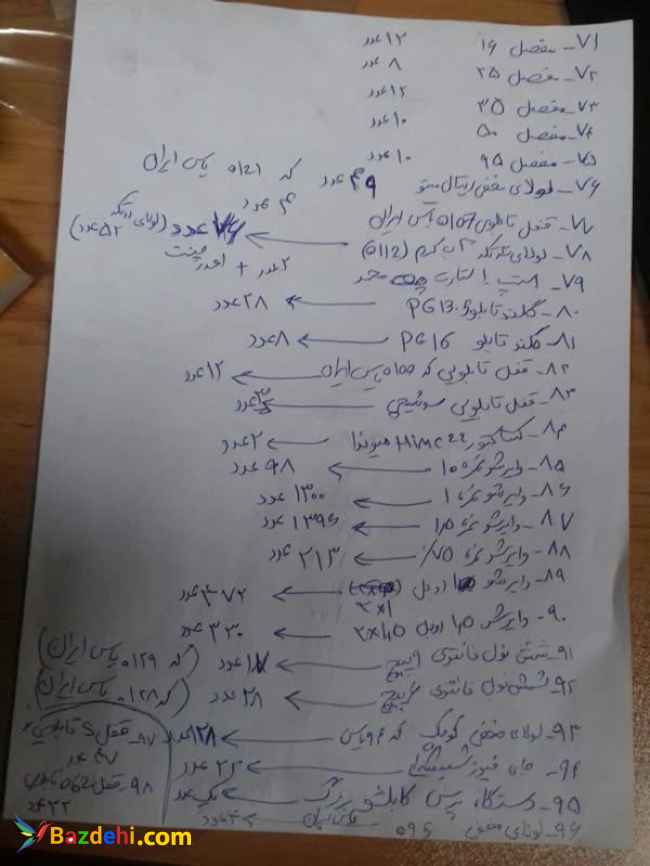 ۷۱- مفصل ۱۶ ۱۲ عدد
۷۲- مفصل ۲۵ ۸ عدد
۷۳- مفصل ۳۵ ۱۲ عدد
۷۴- مفصل ۵۰ ۱۰ عدد
۷۵- مفصل ۹۵ ۱۰ عدد
۷۶- لولای مخفی ۴۹ عدد کد ۰۱۲۱ پاس ایران
۷۷- قفل تابلویی ۰۱۰۷ پاس ایران ۴ عدد
۷۸- لولای (۰۱۱۲) ۷۶ عدد
۷۹- استپ استارت ۲ عدد +
۸۰- گلند تابلو PG13.5 ← ۲۸ عدد
۸۱- گلند تابلو PG16 ← ۸ عدد
۸۲- قفل تابلویی کد ۰۱۰۵ پاس ایران ← ۱۲ عدد
۸۳- قفل تابلویی سوئیچی ← عدد
۸۴- کنتاکتور Himc22 هیوندا ← ۲ عدد
۸۵- وایرشو نمره ۱۰ ← ۹۸ عدد
۸۶- وایرشو نمره ۱ ← ۱۳۰۰ عدد
۸۷- وایرشو نمره ۱,۵ ← ۱۳۹۶ عدد
۸۸- وایرشو نمره ۰/۷۵ ← ۲۱۳ عدد
۸۹- وایرشو ۱ دوبل ۲×۱ ← ۴۷۲ عدد
۹۰- وایرشو ۱,۵ دوبل ۲×۱,۵ ← ۳۳۰ عدد
۹۱- شینه نول فانتوی ۹ پیچ ← ۱۷ عدد (کد ۰۱۲۹ پاس ایران)
۹۲- شینه نول فانتوی ۶ پیچ ← ۲۸ عدد (کد ۰۱۲۸ پاس ایران)
۹۳- لولای مخفی کوچک کد ۹۶ پاس ← ۱۲۸ عدد
۹۴- پایه فیوز ← ۲۲ عدد
۹۵- دستگاه پرس کابلشو بزرگ ← یک عدد
۹۶- لولای مخفی ۵۹۵ ← ۴ عدد
۹۷- قفل S تابلویی
۴۷ عدد
۹۸- قفل
۲۲ عدد
Bazdehi.com